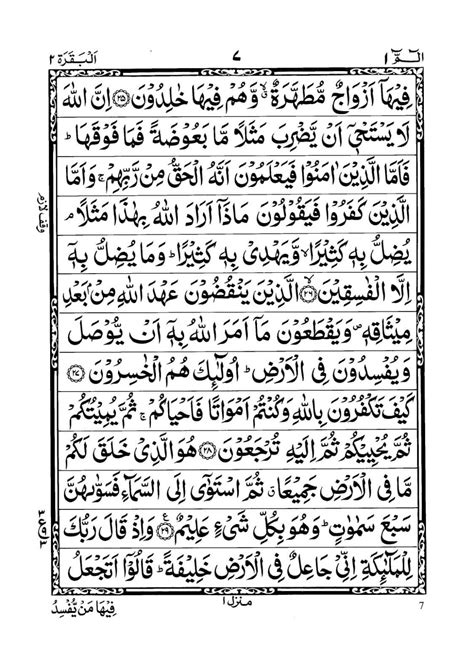 الٓمّٓ ١ ٧ اَلْبَقَرَة ٢
فِیْهَاۤ اَزْوَاجٌ مُّطَهَّرَةٌ ۙۗ وَّهُمْ فِیْهَا خٰلِدُوْنَ ﴿۲۵﴾ اِنَّ اللّٰهَ
لَا یَسْتَحْیٖۤ اَنْ یَّضْرِبَ مَثَلًا مَّا بَعُوْضَةً فَمَا فَوْقَهَا ؕ
فَاَمَّا الَّذِیْنَ اٰمَنُوْا فَیَعْلَمُوْنَ اَنَّهُ الْحَقُّ مِنْ رَّبِّهِمْ ۚ وَاَمَّا
الَّذِیْنَ كَفَرُوْا فَیَقُوْلُوْنَ مَاذَاۤ اَرَادَ اللّٰهُ بِهٰذَا مَثَلًا ۘ
یُضِلُّ بِهٖ كَثِیْرًا ۙ وَّیَهْدِیْ بِهٖ كَثِیْرًا ؕ وَمَا یُضِلُّ بِهٖۤ
اِلَّا الْفٰسِقِیْنَ ﴿۲۶﴾ۙ الَّذِیْنَ یَنْقُضُوْنَ عَهْدَ اللّٰهِ مِنْۢ بَعْدِ
مِیْثَاقِهٖ ۪ وَیَقْطَعُوْنَ مَاۤ اَمَرَ اللّٰهُ بِهٖۤ اَنْ یُّوْصَلَ
وَیُفْسِدُوْنَ فِی الْاَرْضِ ؕ اُولٰٓئِكَ هُمُ الْخٰسِرُوْنَ ﴿۲۷﴾
كَیْفَ تَكْفُرُوْنَ بِاللّٰهِ وَكُنْتُمْ اَمْوَاتًا فَاَحْیَاكُمْ ۚ ثُمَّ یُمِیْتُكُمْ
ثُمَّ یُحْیِیْكُمْ ثُمَّ اِلَیْهِ تُرْجَعُوْنَ ﴿۲۸﴾ هُوَ الَّذِیْ خَلَقَ لَكُمْ
مَّا فِی الْاَرْضِ جَمِیْعًا ۗ ثُمَّ اسْتَوٰۤی اِلَی السَّمَآءِ فَسَوّٰىهُنَّ
سَبْعَ سَمٰوٰتٍ ؕ وَهُوَ بِكُلِّ شَیْءٍ عَلِیْمٌ ﴿۲۹﴾ وَاِذْ قَالَ رَبُّكَ
لِلْمَلٰٓئِكَةِ اِنِّیْ جَاعِلٌ فِی الْاَرْضِ خَلِیْفَةً ؕ قَالُوْۤا اَتَجْعَلُ
وقف لازم
منزل ١
فِیْهَا مَنْ یُّفْسِدُ
7